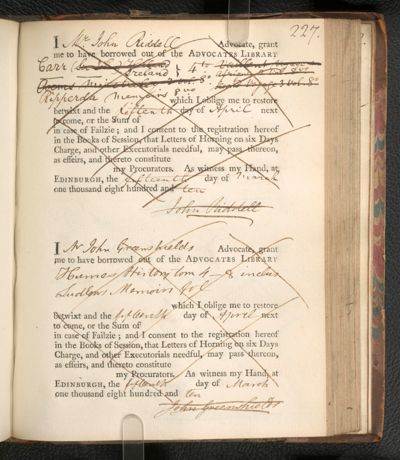 227.
I Mr John Riddell Advocate, grant
me to have borrowed out of the ADVOCATES LIBRARY
Carr
Ireland 4 to
2 vol. 8º 3 Vol. 8º
Ripperda Memoirs
which I oblige me to restore
betwixt and the fifteenth day of April next
to come, or the Sum of
in case of Failzie; and I consent to the registration hereof
in the Books of Session, that Letters of Horning on six Days
Charge, and other Executorials needful, may pass thereon,
as effeirs, and thereto constitute
my Procurators. As witness my Hand, at
EDINBURGH, the fifteenth day of March
one thousand eight hundred and ten
John Riddell
I Mr John Greenshields Advocate, grant
me to have borrowed out of the ADVOCATES LIBRARY
Humes History tom 4 - 8 inclus
Ludlows Memoirs
which I oblige me to restore
betwixt and the fifteenth day of April next
to come, or the Sum of
in case of Failzie; and I consent to the registration hereof
in the Books of Session, that Letters of Horning on six Days
Charge, and other Executorials needful, may pass thereon,
as effeirs, and thereto constitute
my Procurators. As witness my Hand, at
EDINBURGH, the fifteenth day of March
one thousand eight hundred and ten
John Greenshields